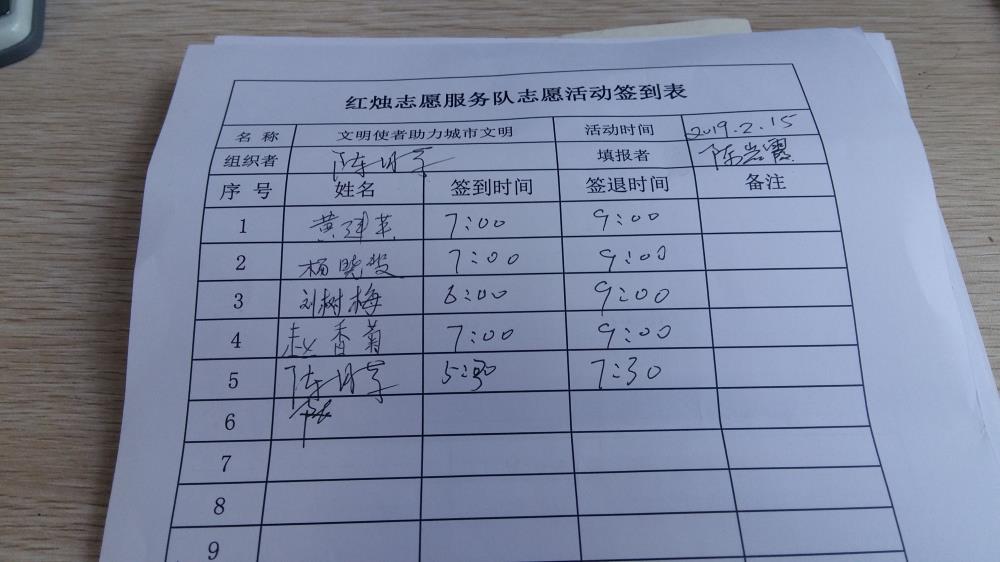 红烛志愿服务队志愿活动签到表
名 称 文明使者助力城市文明 活动时间 2019.2.15
组织者 填报者
序 号 姓名 签到时间 签退时间 备注
1 黄建英 7:00 9:00
2 杨晓俊 7:00 9:00
3 刘树梅 6:00 9:00
4 赵香菊 7:00 9:00
5 5:30 7:30
6
7
8
9